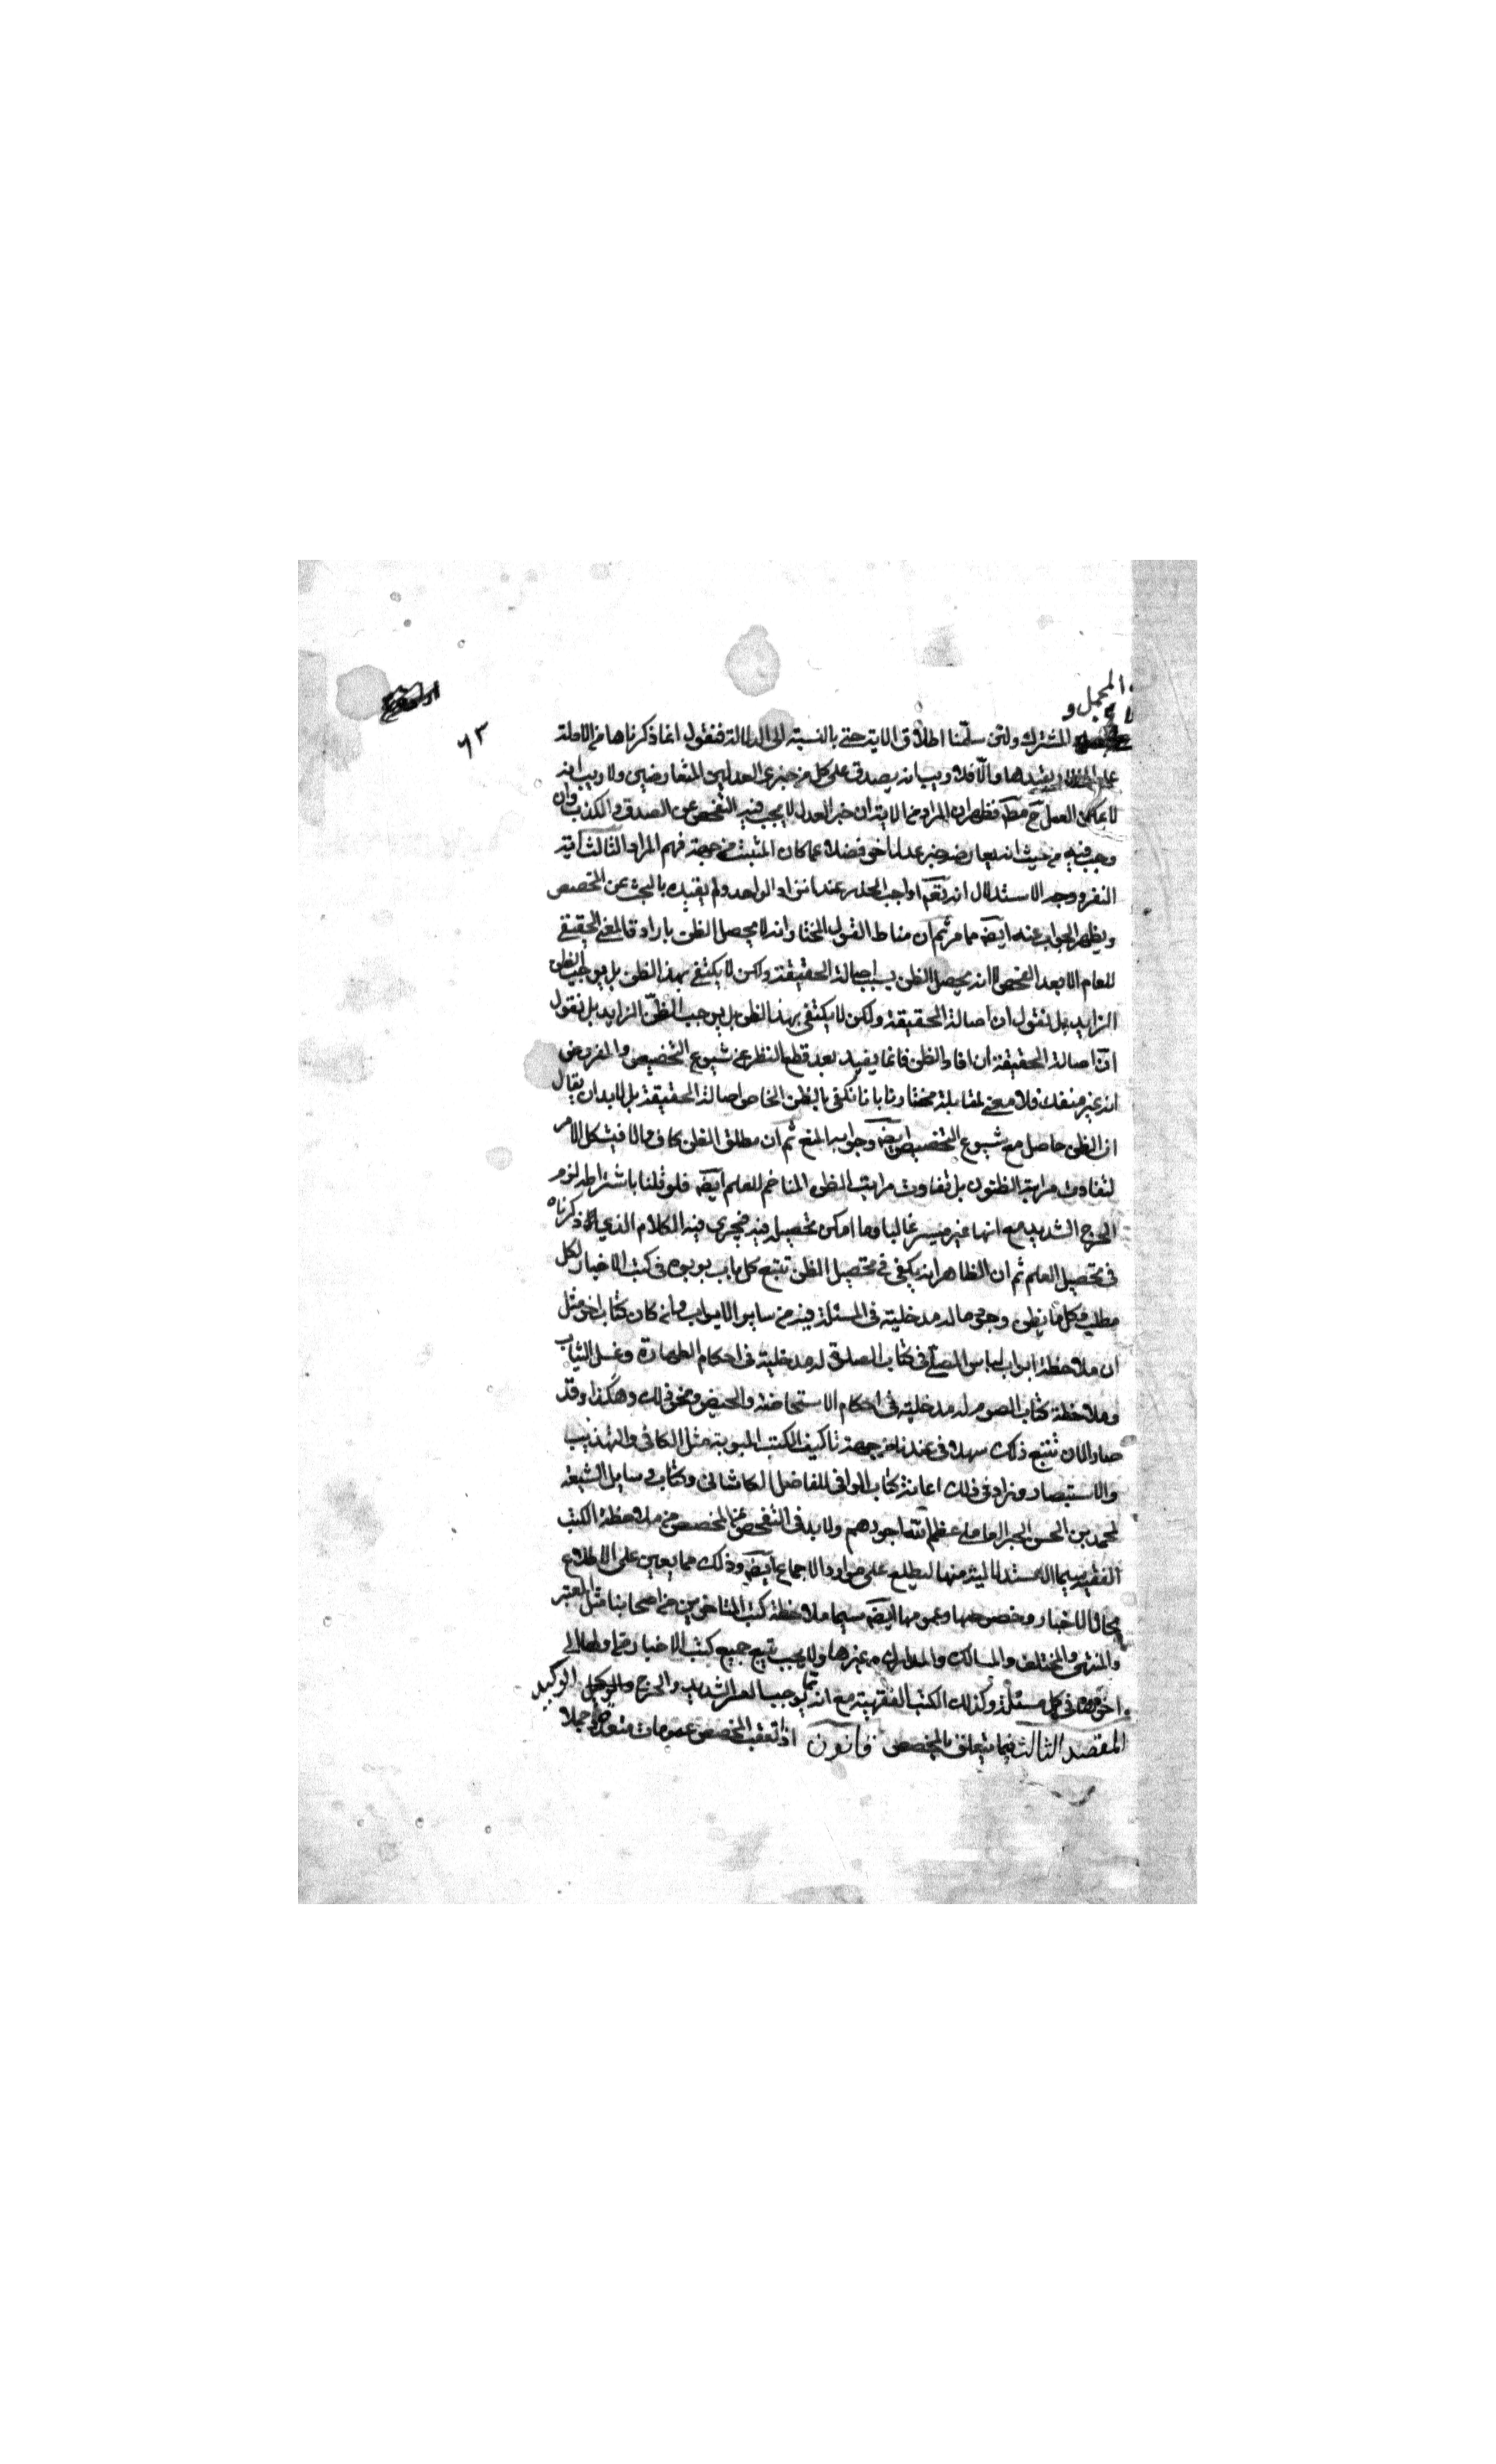 المجمل و
٦٣
المشترك ولئن سلّمنا اطلاق الاية حتى بالنسبة الى الدلالة فنقول انما ذكرناها من الادلة
يقيدها والّا فلا ريب انه يصدق على كل من خبرى العدلين المتعارضين ولا ريب انه
لا يمكن العمل ح مط فظهر ان المراد من الاية ان خبر العدل لا يجب فيه التفحص عن الصدق والكذب وان
وجب فيه من حيث انه يعارضه خبر عدل اخر فضلا عما كان التثبت من جهة فهم المراد الثالث اية
النفر ووجه الاستدلال انه تعم اوجب الحذر عند انذار الواحد ولم يقيده بالبحث عن المخصص
ويظهر الجواب عنه ايضه مما مر ثم ان مناط القول المختار انه لا يحصل الظن بارادة المعنى الحقيقى
للعام الا بعد الفحص لا انه يحصل الظن بسبب اصالة الحقيقة ولكن لا يكتفى بهذا الظن بل يوجب الظن
الزايد بل نقول ان اصالة الحقيقة ولكن لا يكتفى بهذا الظن بل يوجب الظنّ الزايد بل نقول
انّ اصالة الحقيقة ان افاد الظن فانما يفيد بعد قطع النظر عن شيوع التخصيص والمفروض
انه غير منفك فلا معنى لمقابلة مختارنا بانا نكفى بالظن الخاص اصالة الحقيقة بل لا بد ان يقال
ان الظن حاصل مع شيوع التخصيص ايضه وجوابه المنع ثم ان مطلق الظن كاف والا فيشكل الامر
لتفاوت مراتب الظنون بل تفاوت مراتب الظن المتاخم للعلم ايضه فلو قلنا باشتراطه لزم
الحرج الشديد مع انها غير ميسر غالبا وما امكن تحصيله فيه فيجرى فيه الكلام الذي ذكرناه
فى تحصيل العلم ثم ان الظاهر انه يكفى فى تحصيل الظن تتبع كل باب بوبوه فى كتب الاخبار لكل
مطلب وكل ما يظن وجود ماله مدخلية فى المسئلة فيه من ساير الابواب وان كان كتاب اخر مثل
ان ملاحظة ابواب لباس المصلّى فى كتاب الصلوة له مدخلية فى احكام الطهارة وغسل الثياب
وملاحظة كتاب الصوم له مدخلية فى احكام الاستحاضة والحيض ونحو ذلك وهكذا وقد
صار الان تتبع ذلك سهلا فى عندنا من جهة تاليف الكتب المبوبة مثل الكافى والتهذيب
والاستبصار وزاد فى ذلك اعانة كتاب الوافى للفاضل الكاشانى وكتاب وسايل الشيعة
لمحمد بن الحسن الحر العاملى عظم الله اجورهم ولا بد فى التفحص عن المخصص من ملاحظة الكتب
الفقهيه سيما الاستدلالية منها ليطلع على موارد الاجماع ايضه وذلك مما يعين على الاطلاع
بحال الاخبار وخصوصها وعمومها ايضه سيما ملاحظة كتب المتاخرين من اصحابنا مثل المعتبر
والمنتهى والمختلف والمسالك والمدارك وغيرها ولا يجب تتبع جميع كتب الاخبار من اولها الى
اخرها فى كل مسئلة وكذلك الكتب الفقهية مع انه مما يوجب العسر الشديد والحرج الوكيد
المقصد الثالث فيما يتعلق بالمخصص قانون اذا تعقب المخصص عمومات متعددة جملا